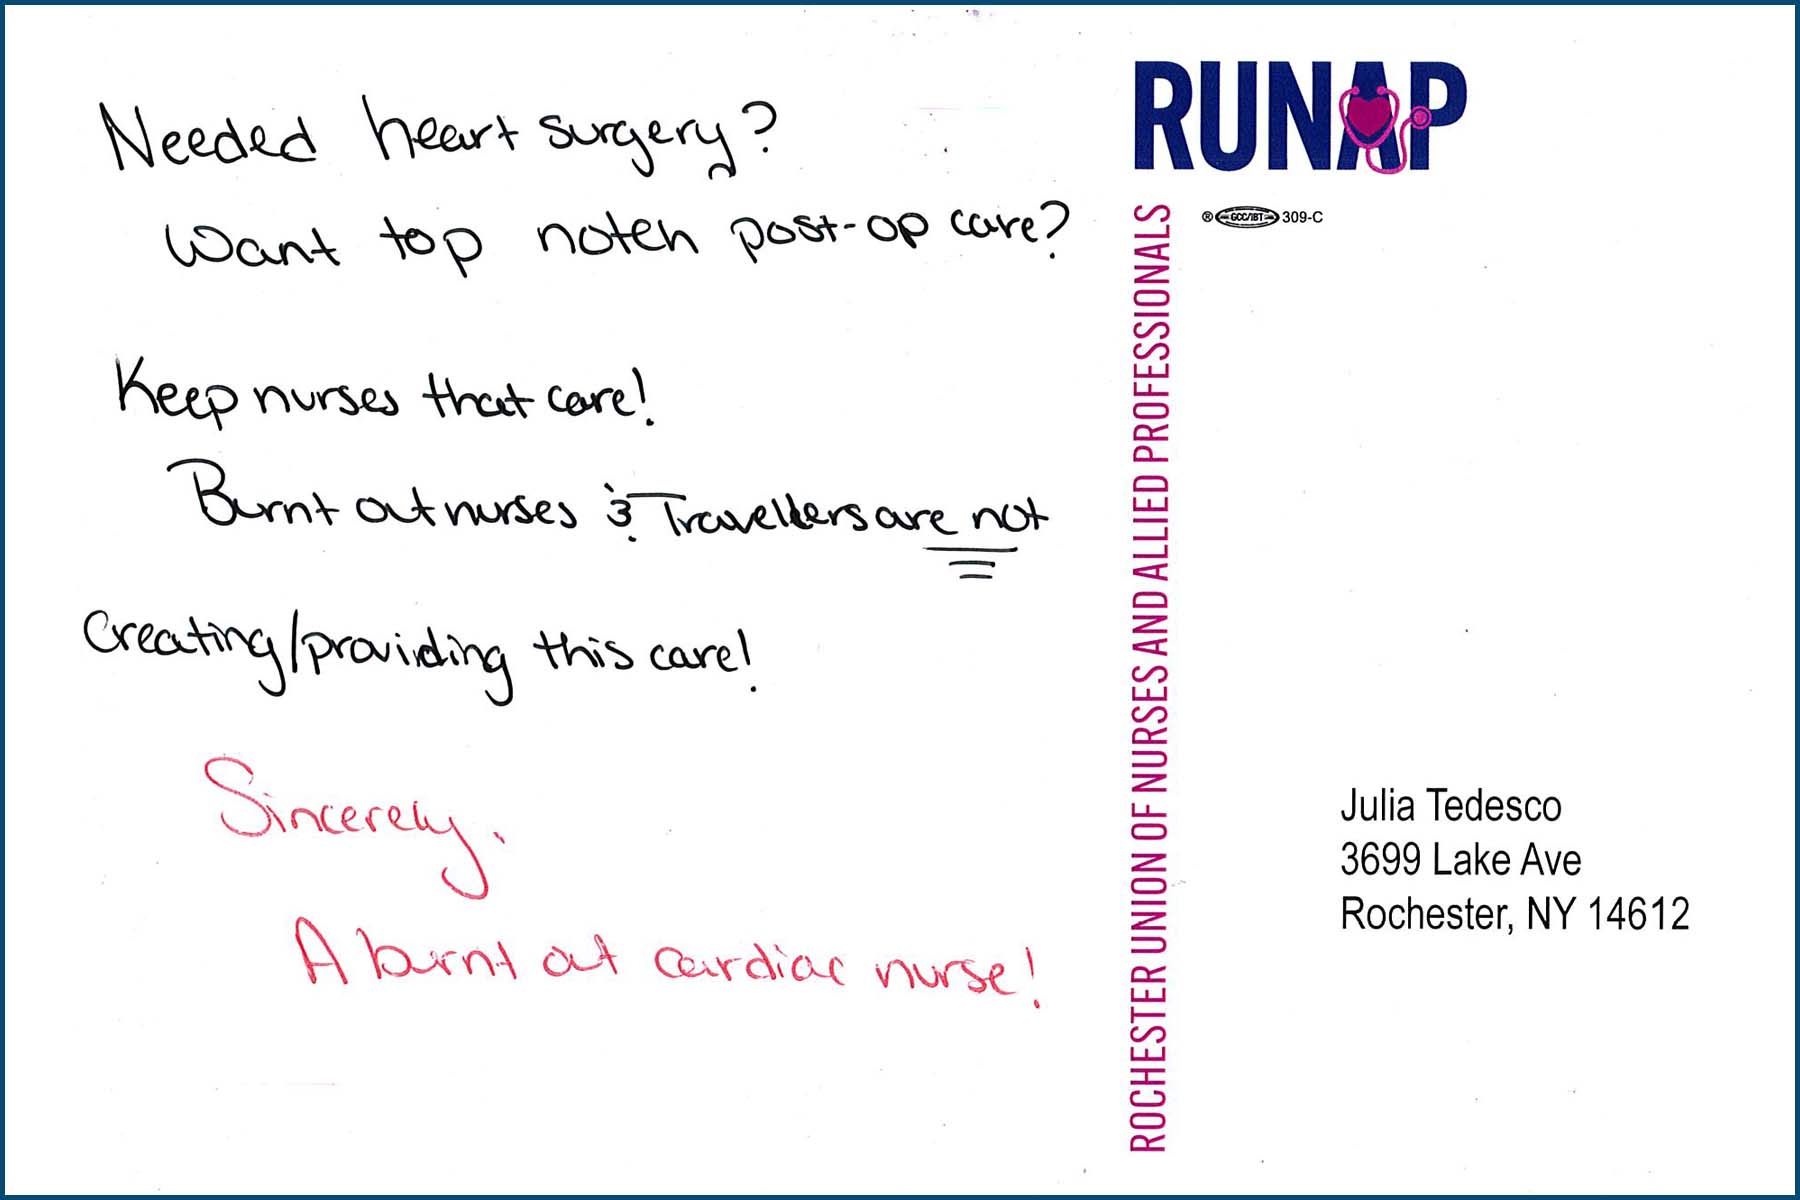 Needed heart surgery?
Want top notch post-op care?
Keep nurses that care!
Burnt out nurses & Travellers are not
creating/providing this care!
Sincerely,
A burnt out cardiac nurse!
RUNAP
® GCC/IBT 309-C
ROCHESTER UNION OF NURSES AND ALLIED PROFESSIONALS
Julia Tedesco
3699 Lake Ave
Rochester, NY 14612